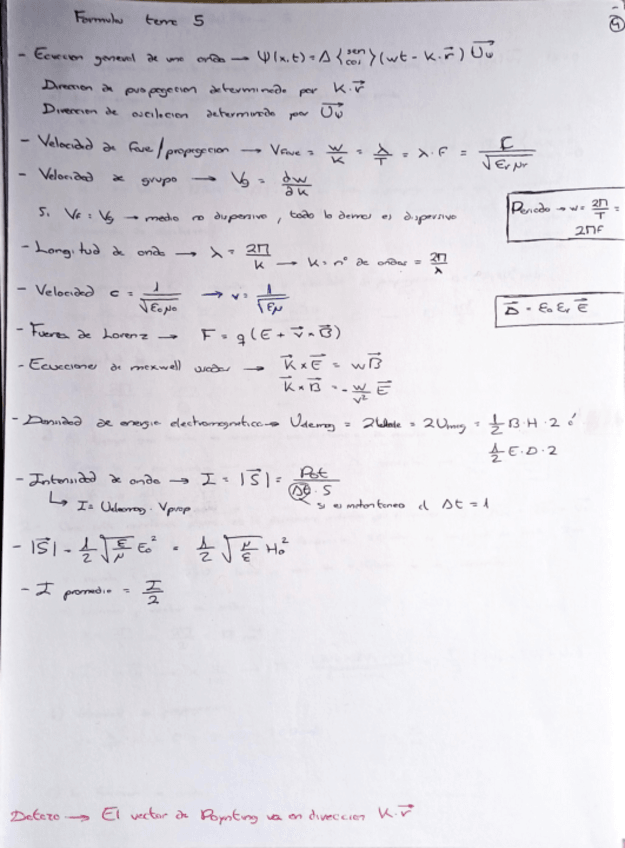 Formulas tema 5
④
- Ecuacion general de una onda → Ψ(x,t) = A {sen cos} (wt - K·r⃗) U⃗ψ
Direccion de propagacion determinado por K·r⃗
Direccion de oscilacion determinado por U⃗ψ
- Velocidad de fase/propagacion → Vfase = w/K = λ/T = λ·F = c/√(εr μr)
- Velocidad de grupo → Vg = ∂w/∂k
Si VF = Vg → medio no dispersivo, todo lo demas es dispersivo
Periodo → w = 2π/T = 2πF
- Longitud de onda → λ = 2π/K → K = nº de ondas = 2π/λ
- Velocidad c = 1/√(ε0 μ0) → v = 1/√(εμ)
D⃗ = ε0 εr E⃗
- Fuerza de Lorenz → F = q(E + v⃗ × B⃗)
- Ecuaciones de maxwell ondas → K⃗ × E⃗ = wB⃗
K⃗ × B⃗ = -w/v² E⃗
- Densidad de energia electromagnetica → Udemag = 2Uele = 2Umag = 1/2 B·H·2 ó
1/2 E·D·2
- Intensidad de onda → I = |S⃗| = Pot/(Δt·S)
↳ I = Udemag · Vprop
si es instantanea el Δt = 1
- |S⃗| = 1/2 √(ε/μ) E0² = 1/2 √(μ/ε) H0²
- I promedio = I/2
Detazo → El vector de Poynting va en direccion K·r⃗